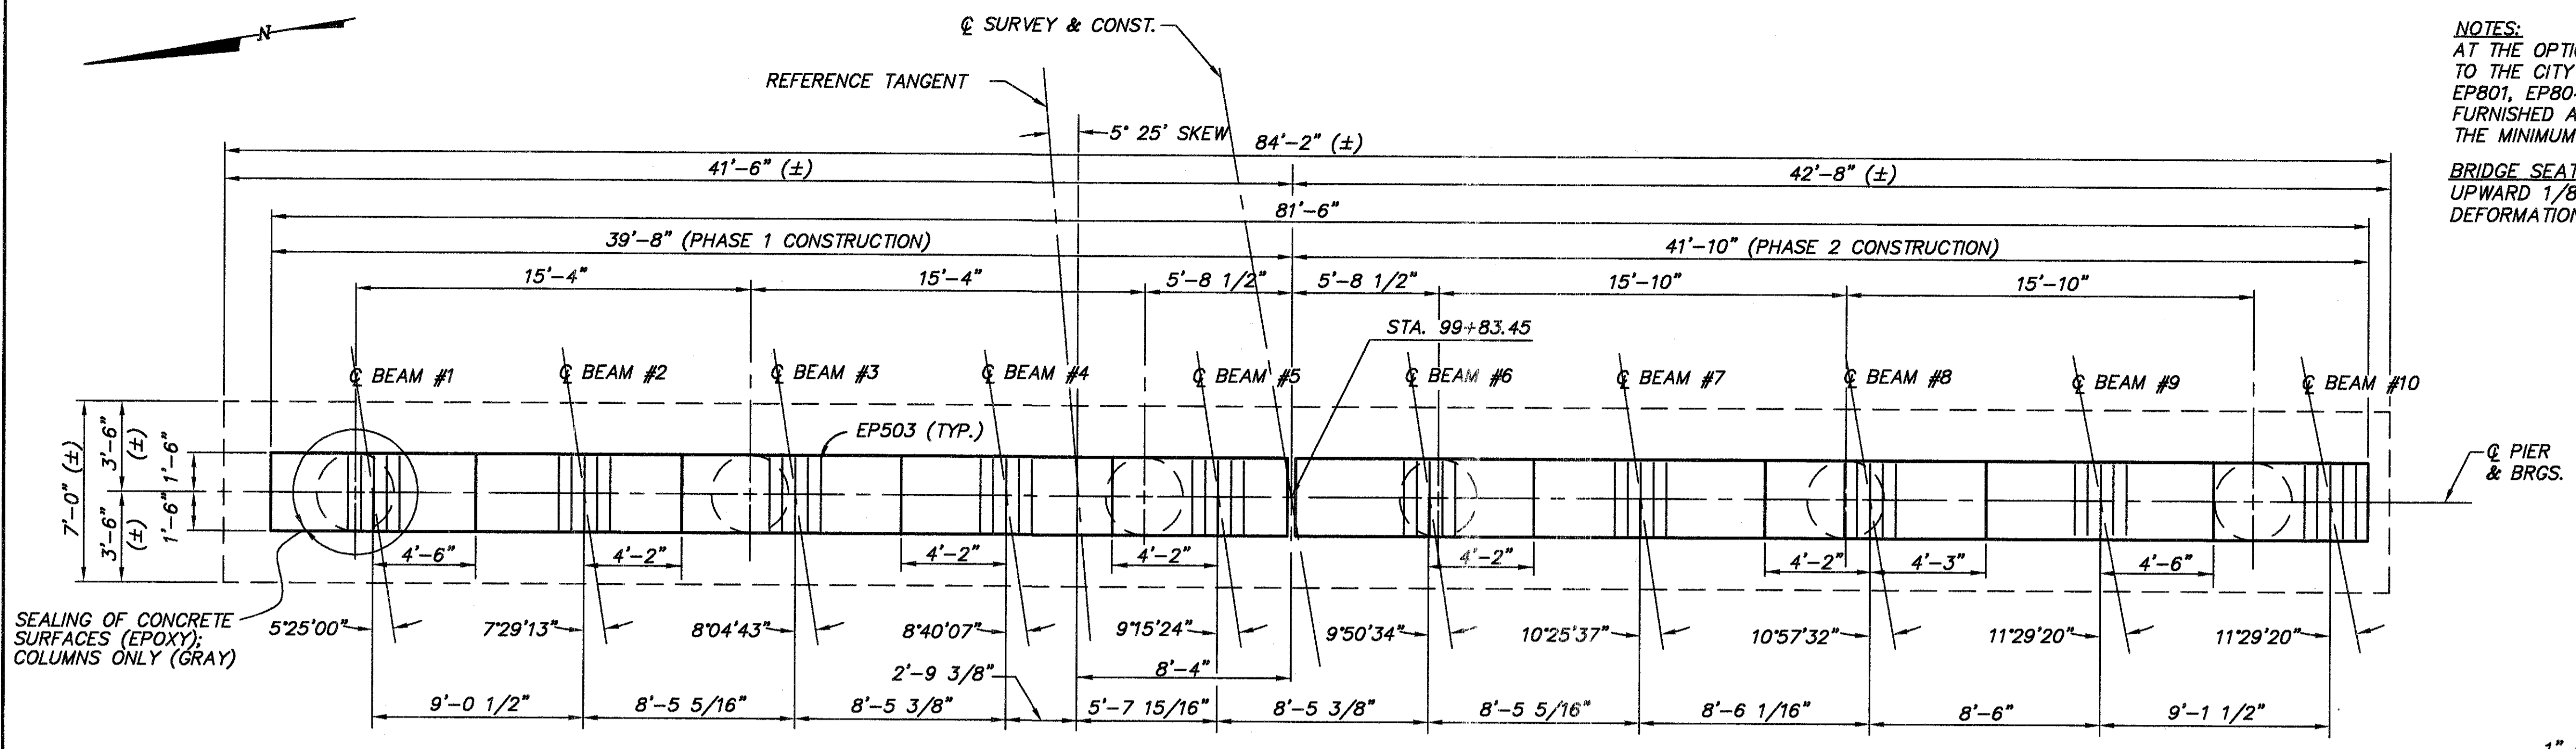 N
℄ SURVEY & CONST.
REFERENCE TANGENT
5° 25' SKEW
84'-2" (±)
41'-6" (±)
42'-8" (±)
81'-6"
39'-8" (PHASE 1 CONSTRUCTION)
41'-10" (PHASE 2 CONSTRUCTION)
15'-4"
15'-4"
5'-8 1/2"
5'-8 1/2"
15'-10"
15'-10"
STA. 99+83.45
℄ BEAM #1
℄ BEAM #2
℄ BEAM #3
℄ BEAM #4
℄ BEAM #5
℄ BEAM #6
℄ BEAM #7
℄ BEAM #8
℄ BEAM #9
℄ BEAM #10
EP503 (TYP.)
7'-0" (±)
3'-6"
(±)
3'-6"
(±)
1'-6"
1'-6"
℄ PIER
& BRGS.
4'-6"
4'-2"
4'-2"
4'-2"
4'-2"
4'-2"
4'-3"
4'-6"
SEALING OF CONCRETE
SURFACES (EPOXY);
COLUMNS ONLY (GRAY)
5°25'00"
7°29'13"
8°04'43"
8°40'07"
9°15'24"
9°50'34"
10°25'37"
10°57'32"
11°29'20"
11°29'20"
2'-9 3/8"
8'-4"
9'-0 1/2"
8'-5 5/16"
8'-5 3/8"
5'-7 15/16"
8'-5 3/8"
8'-5 5/16"
8'-6 1/16"
8'-6"
9'-1 1/2"
NOTES:
AT THE OPTI
TO THE CITY
EP801, EP80
FURNISHED A
THE MINIMUM
BRIDGE SEAT
UPWARD 1/8
DEFORMATION
1"